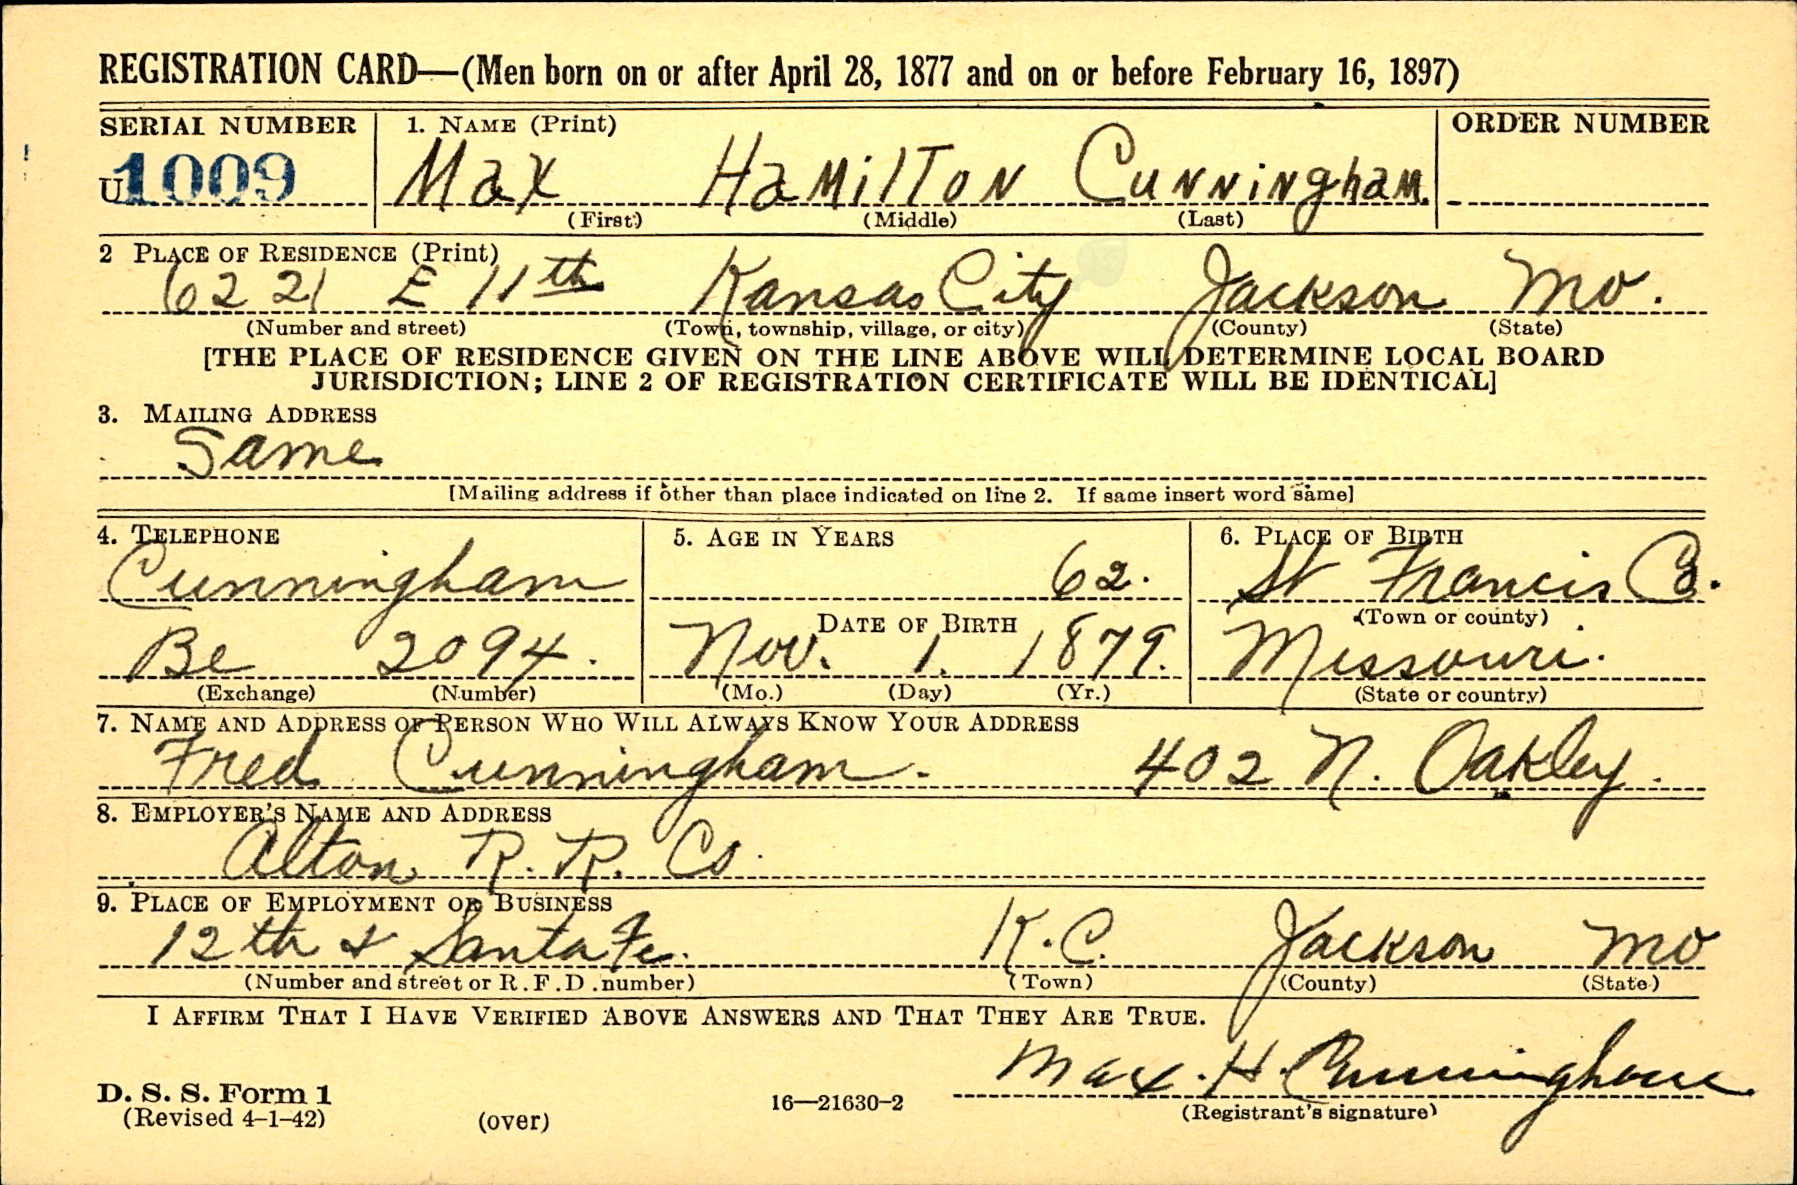 REGISTRATION CARD—(Men born on or after April 28, 1877 and on or before February 16, 1897)
SERIAL NUMBER 1. NAME (Print) ORDER NUMBER
U 1009 Max Hamilton Cunningham.
(First) (Middle) (Last)
2 PLACE OF RESIDENCE (Print)
6221 E 11th Kansas City Jackson Mo.
(Number and street) (Town, township, village, or city) (County) (State)
[THE PLACE OF RESIDENCE GIVEN ON THE LINE ABOVE WILL DETERMINE LOCAL BOARD
JURISDICTION; LINE 2 OF REGISTRATION CERTIFICATE WILL BE IDENTICAL]
3. MAILING ADDRESS
Same
[Mailing address if other than place indicated on line 2. If same insert word same]
4. TELEPHONE 5. AGE IN YEARS 6. PLACE OF BIRTH
Cunningham 62. St Francis Co.
DATE OF BIRTH (Town or county)
Be 2094. Nov. 1. 1879. Missouri.
(Exchange) (Number) (Mo.) (Day) (Yr.) (State or country)
7. NAME AND ADDRESS OF PERSON WHO WILL ALWAYS KNOW YOUR ADDRESS
Fred Cunningham. 402 N. Oakley.
8. EMPLOYER'S NAME AND ADDRESS
Alton R. R. Co.
9. PLACE OF EMPLOYMENT OR BUSINESS
12th & Santa Fe. K.C. Jackson Mo
(Number and street or R.F.D. number) (Town) (County) (State)
I AFFIRM THAT I HAVE VERIFIED ABOVE ANSWERS AND THAT THEY ARE TRUE.
Max. H. Cunningham
D. S. S. Form 1
(Revised 4-1-42) (over) 16—21630-2 (Registrant's signature)